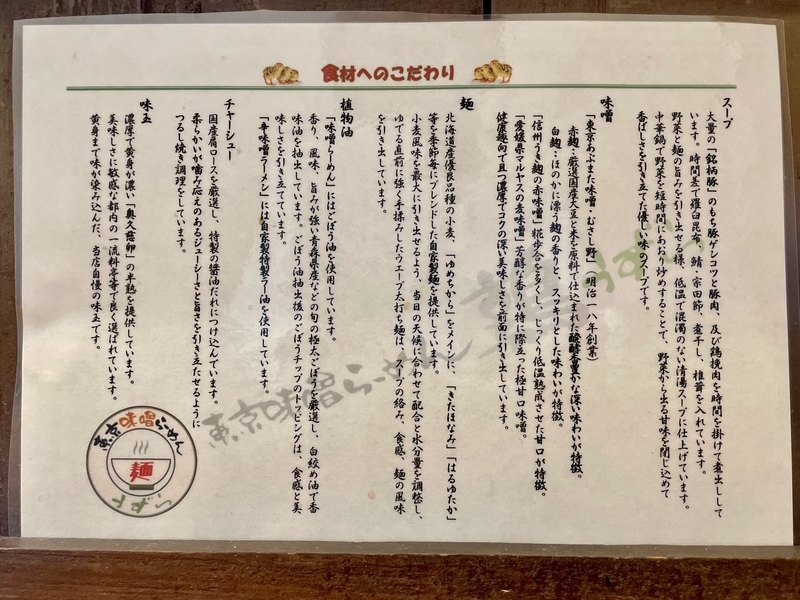 食材へのこだわり
スープ
大量の「銘柄豚」のもち豚ゲンコツと豚肉、及び鶏挽肉を時間を掛けて煮出しして
います。時間差で羅臼昆布、鯖・宗田節、煮干し、椎茸を入れています。
野菜と麺の旨みを引き出せる様、低温で混濁のない清湯スープに仕上げています。
中華鍋で野菜を短時間にあおり炒めすることで、野菜から出る甘味を閉じ込めて
香ばしさを引き立てた優しい味のスープです。
味噌
「東京あぶまた味噌・むさし野」（明治一八年創業）
赤麹：厳選国産大豆と米を原料で仕込まれた醗酵香豊かな深い味わいが特徴。
白麹：ほのかに漂う麹の香りと、スッキリとした味わいが特徴。
「信州うき麹の赤味噌」糀歩合を多くし、じっくり低温熟成させた甘口が特徴。
「愛媛県マルヤスの麦味噌」芳醇な香りが特に際立った極甘口味噌。
健康趣向で且つ濃厚でコクの深い美味しさを前面に引き出しています。
麺
北海道産優良品種の小麦、「ゆめちから」をメインに、「きたほなみ」「はるゆたか」
等を季節毎にブレンドした自家製麺を提供しています。
小麦風味を最大に引き出せるよう、当日の天候に合わせて配合と水分量を調整し、
ゆでる直前に強く手揉みしたウエーブ太打ち麺は、スープの絡み、食感、麺の風味
を引き出しています。
植物油
「味噌らーめん」にはごぼう油を使用しています。
香り、風味、旨みが強い青森県産などの旬の極太ごぼうを厳選し、白絞め油で香
味油を抽出しています。ごぼう油抽出後のごぼうチップのトッピングは、食感と美
味しさを引き立てています。
「辛味噌ラーメン」には自家製特製ラー油を使用しています。
チャーシュー
国産肩ロースを厳選し、特製の醤油だれにつけ込んでいます。
柔らかいが噛み応えのあるジューシーさと旨さを引き立たせるように
つるし焼き調理をしています。
味玉
濃厚で黄身が濃い「奥久慈卵」の半熟を提供しています。
美味しさに敏感な都内の一流料亭等で良く選ばれています。
黄身まで味が染み込んだ、当店自慢の味玉です。
東京味噌らーめん
東京味噌らーめん
麺